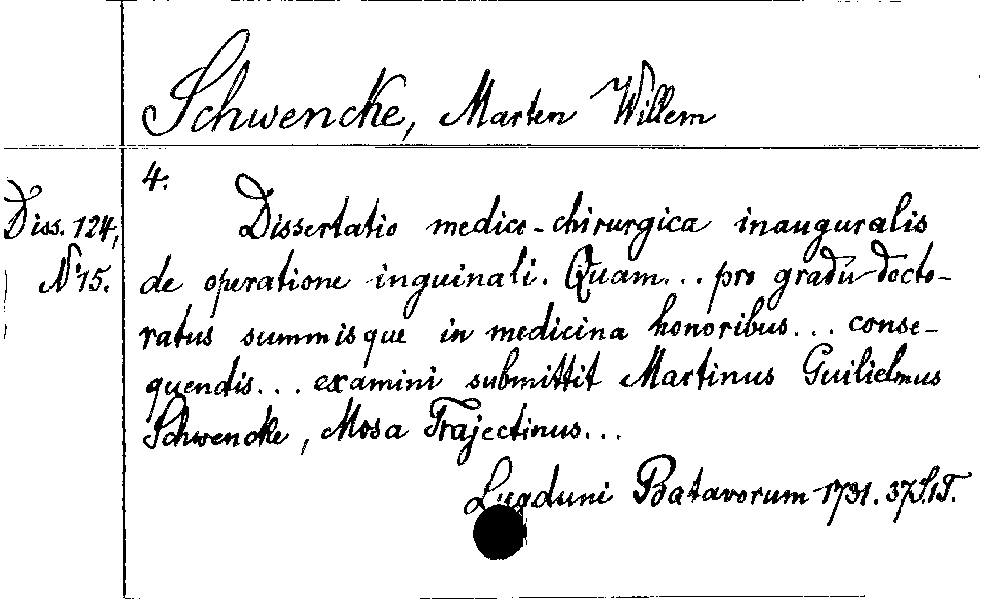 Schwencke, Marten Willem
4.
Diss. 124,
N 15.
Dissertatio medico-chirurgica inauguralis
de operatione inguinali. Quam... pro gradu docto-
ratus summisque in medicina honoribus... conse-
quendis... examini submittit Martinus Guilielmus
Schwencke, Mosa Trajectinus...
Lugduni Batavorum 1731. 37 S. 1 T.